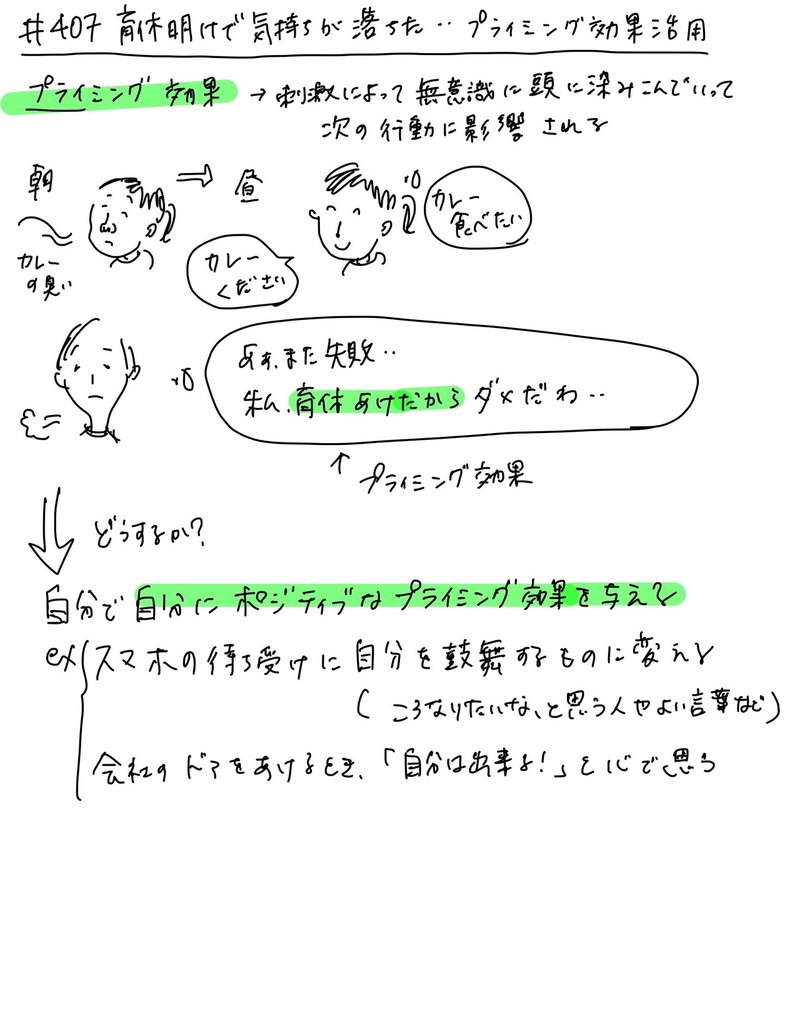 #407 育休明けで気持ちが落ちた‥ プライミング効果活用
プライミング効果 → 刺激によって無意識に頭に染みこんでいって
次の行動に影響される
朝
カレー
の臭い
⇒ 昼
カレー
ください
カレー
食べたい
ああ、また失敗‥
私、育休あけだから ダメだわ‥
↑ プライミング効果
どうするか?
自分で自分にポジティブなプライミング効果を与える
ex スマホの待ち受けに自分を鼓舞するものに変える
(こうなりたいな、と思う人やよい言葉など)
会社のドアをあけるとき、「自分は出来る!」と心で思う